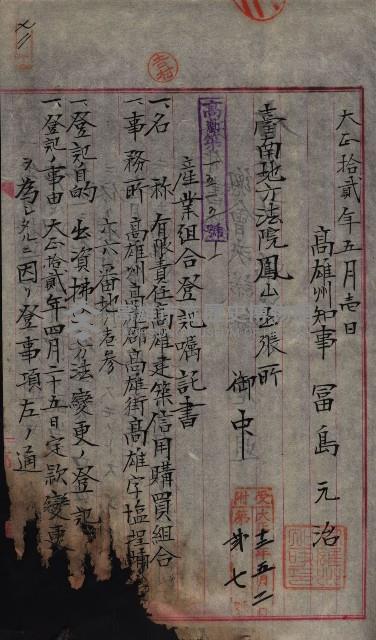 大正拾貳年五月壱日
高雄州知事 冨島元治
臺南地方法院鳳山出張所
御中
高勸築 號ノ一
産業組合登記嘱託書
一、名 称 有限責任高雄建築信用購買組合
一、事務所 高雄州高雄郡高雄街高雄字塩埕埔
六番地
一、登記ノ目的 出資拂 方法變更ノ登記
一、登記ノ事由 大正拾貳年四月二十五日定款變更
ヲ為シタルニ因ル登 事項左ノ通
受 大 十二年五月二
附 第 七